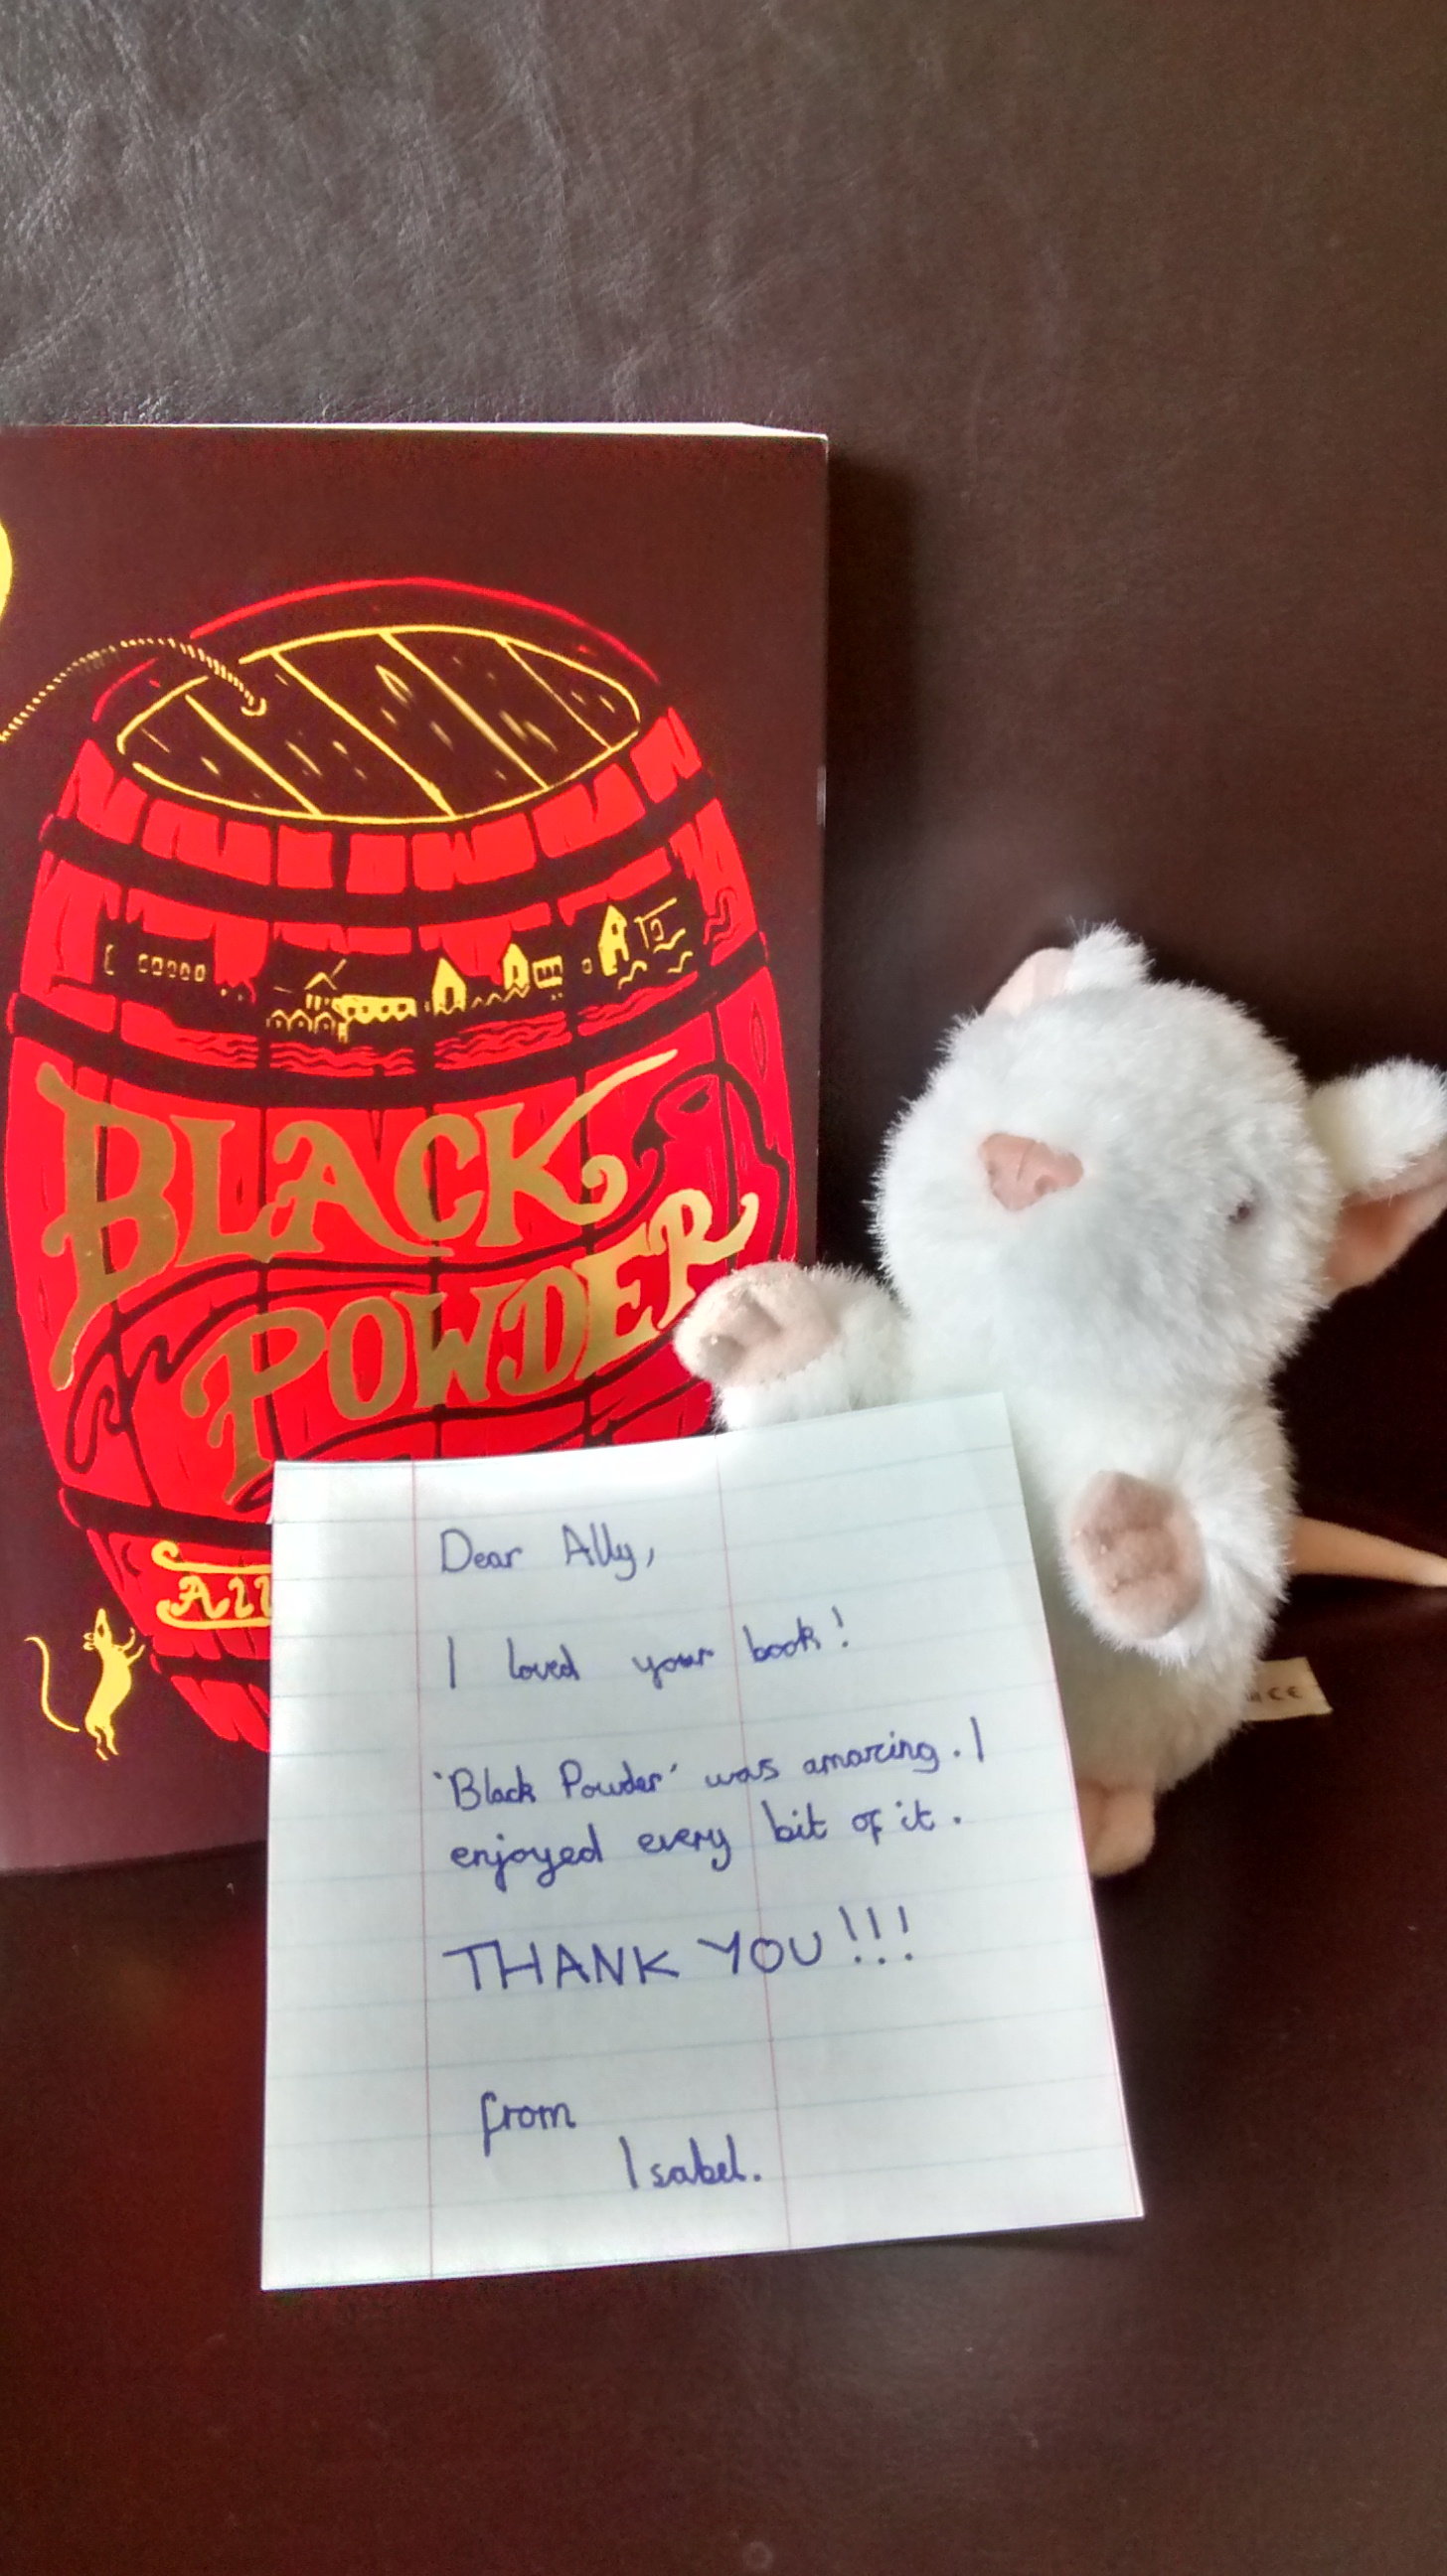 BLACK
POWDER
All
Dear Ally,
I loved your book!
'Black Powder' was amazing. I
enjoyed every bit of it.
THANK YOU!!!
from
Isabel.
CE